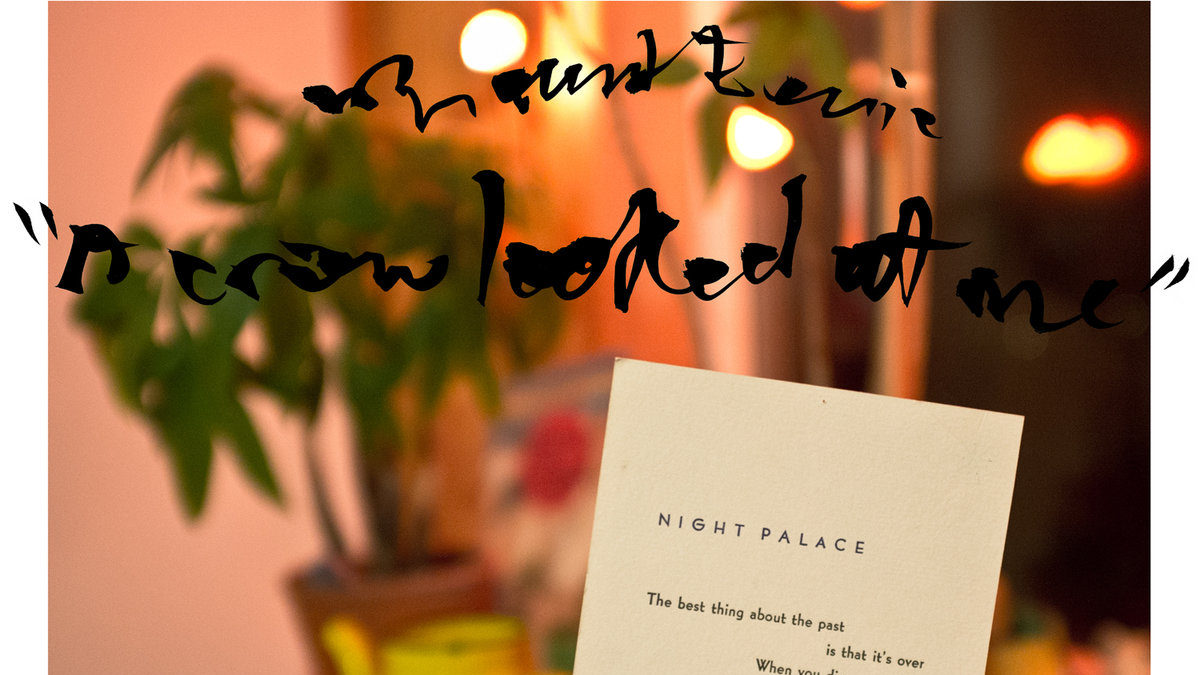 mount eerie
"A crow looked at me"
NIGHT PALACE
The best thing about the past
is that it's over
When you